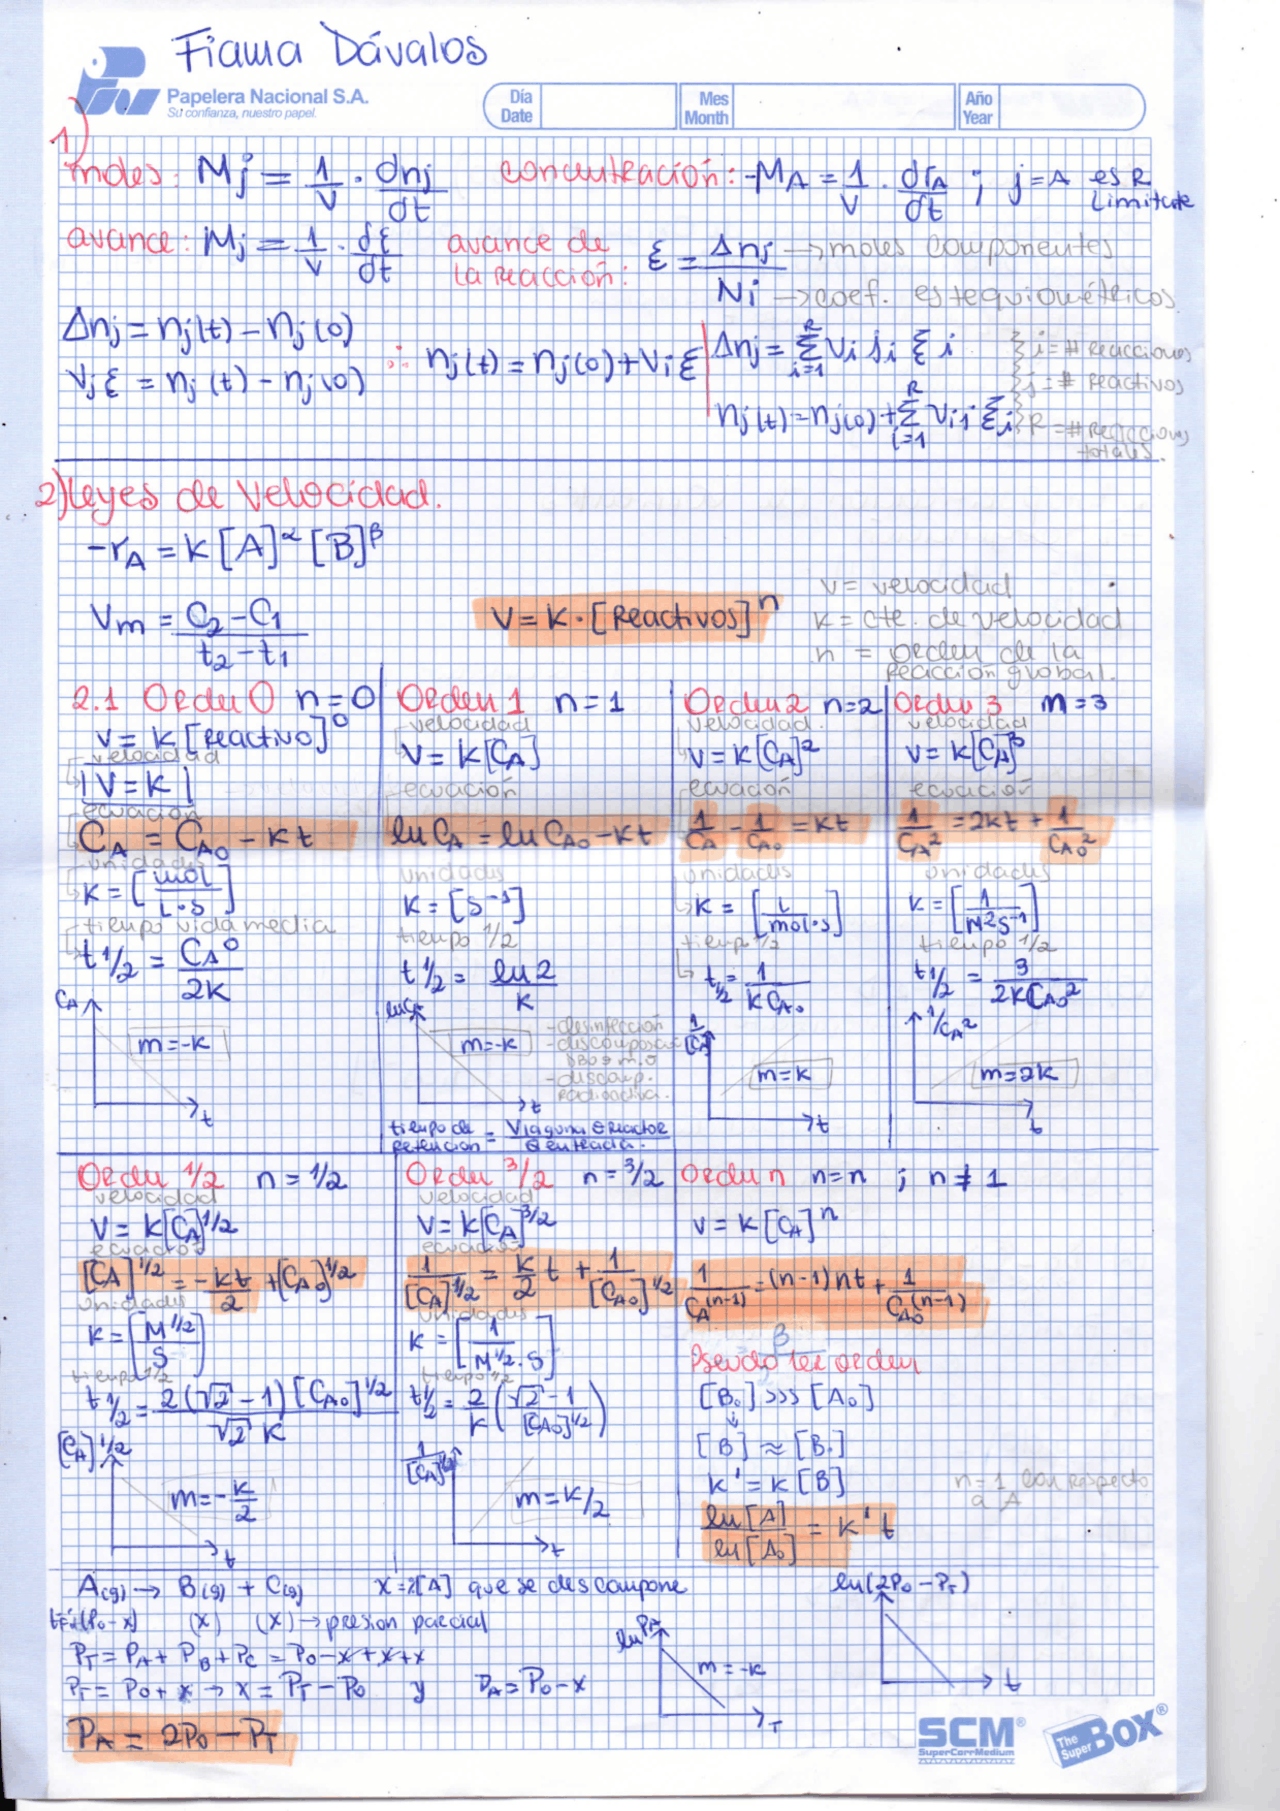 Fiama Dávalos
Papelera Nacional S.A.
Su confianza, nuestro papel.
Día
Date
Mes
Month
Año
Year
1)
moles: Mj = 1/V · dnj/dt
concentración: -MA = 1/V · drA/dt ; j=A es R Limitante
avance: Mj = 1/V · dξ/dt
avance de la reacción: ξ = Δnj/Ni
→moles componentes
→coef. estequiométricos
Δnj = nj(t) - nj(0)
Vjξ = nj(t) - nj(0)
∴ nj(t) = nj(0) + Viξ
Δnj = Σ(i=1, R) Vi ji ξi
nj(t) = nj(0) + Σ(i=1, R) Vij ξi
i = # reacciones
j = # reactivos
R = # reacciones totales.
2) Leyes de Velocidad.
-rA = K[A]^α [B]^β
Vm = (C2 - C1)/(t2 - t1)
V = K · [Reactivos]^n
V = velocidad
K = cte. de velocidad
n = orden de la reacción global.
2.1 Orden 0 n=0
V = K [reactivo]^0
velocidad
V = K
ecuación
CA = CA0 - Kt
unidades
K = [mol/L·s]
tiempo vida media
t1/2 = CA0/2K
CA
m = -K
t
Orden 1 n=1
velocidad
V = K[CA]
ecuación
ln CA = ln CA0 - Kt
unidades
K = [s^-1]
tiempo 1/2
t1/2 = ln 2/K
ln CA
m = -K
-desinfección
-descomposición DBO y m.o
-descomp. radioactiva.
t
tiempo de retención = V laguna o Reactor / Q entrada.
Orden 2 n=2
velocidad.
V = K[CA]^2
ecuación
1/CA - 1/CA0 = Kt
unidades
K = [L/mol·s]
tiempo 1/2
t1/2 = 1/KCA0
1/[CA]
m = K
t
Orden 3 m=3
velocidad
V = K[CA]^3
ecuación
1/CA^2 = 2Kt + 1/CA0^2
unidades
K = [1/M^2 s^-1]
tiempo 1/2
t1/2 = 3/2KCA0^2
1/CA^2
m = 2K
t
Orden 1/2 n = 1/2
velocidad
V = K[CA]^1/2
ecuación
[CA]^1/2 = -Kt/2 + [CA0]^1/2
unidades
K = [M^1/2/S]
tiempo 1/2
t1/2 = 2(√2 - 1)[CA0]^1/2 / √2 K
[CA]^1/2
m = -K/2
t
Orden 3/2 n = 3/2
velocidad
V = K[CA]^3/2
ecuación
1/[CA]^1/2 = K/2 t + 1/[CA0]^1/2
unidades
K = [1/M^1/2·S]
tiempo 1/2
t1/2 = 2/K (√2 - 1/[CA0]^1/2)
1/[CA]^1/2
m = K/2
t
Orden n n=n ; n≠1
V = K[CA]^n
1/CA^(n-1) = (n-1)nt + 1/CA0^(n-1)
B
Pseudo 1er orden
[B0] >>> [A0]
[B] ≈ [B0]
K' = K[B]
n=1 con respecto a A
ln[A]/ln[A0] = K't
A(g) → B(g) + C(g) X = [A] que se descompone
(P0 - x) (x) (x) → presión parcial
PT = PA + PB + PC = P0 - x + x + x
PT = P0 + x → x = PT - P0 y PA = P0 - x
PA = 2P0 - PT
ln PA
m = -K
T
ln(2P0 - PT)
t
SCM®
SuperCorrMedium
The Super BOX®